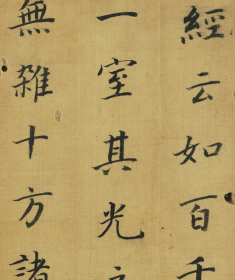 經云如百千
一室其光
無雜十方諸